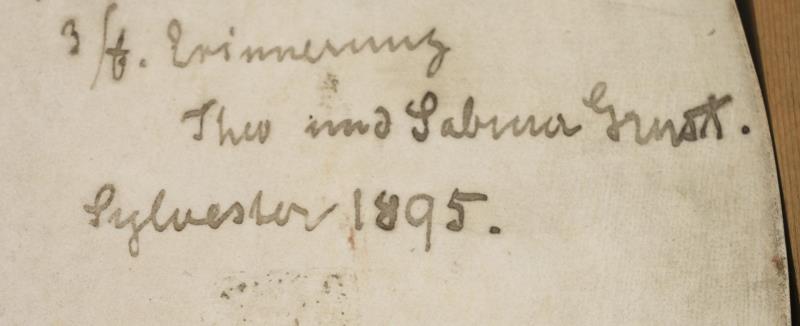 Erinnerung
Theo und Sabina
Sylvester 1895.